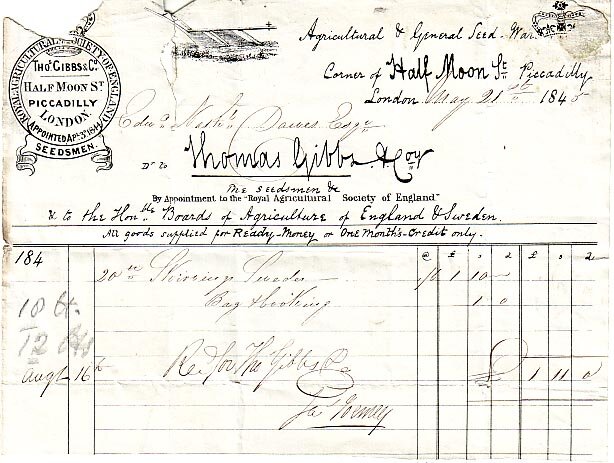 ROYAL AGRICULTURAL SOCIETY OF ENGLAND
THOS. GIBBS & Co.
HALF MOON ST
PICCADILLY
LONDON.
APPOINTED
SEEDSMEN.
Agricultural & General Seed
Corner of Half Moon St Piccadilly
London May 21st 1845
Dawes Esqr
Dr to
Thomas Gibbs & Coy
The Seedsmen &c
By Appointment to the "Royal Agricultural Society of England"
& to the Honble Boards of Agriculture of England & Sweden.
All goods supplied for Ready-Money or One Month's Credit only.
184 @ £ s d £ s d
20 lb Skirvings Swede 1/6 1 10 -
Bag & booking 1 0
Augt 16th Recd for Thos Gibbs & Co £ 1 11 0